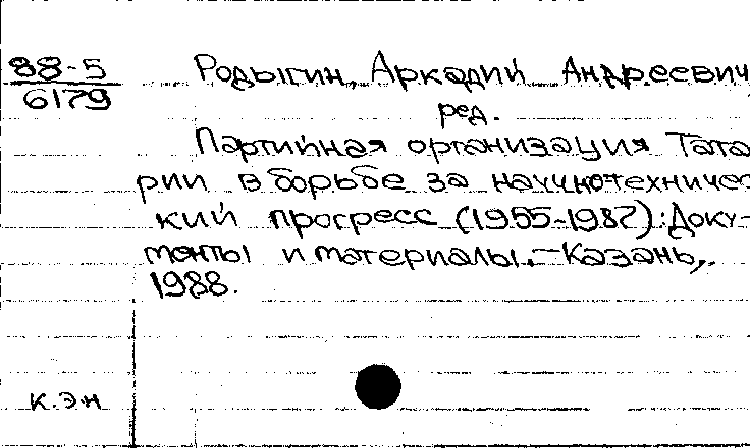 88-5
6179
Родыгин, Аркадий Андреевич
ред.
Партийная организация Тата
рии в борьбе за научно-техничес
кий прогресс (1955-1987): Доку-
менты и материалы.-Казань,
1988.
К.ЭН